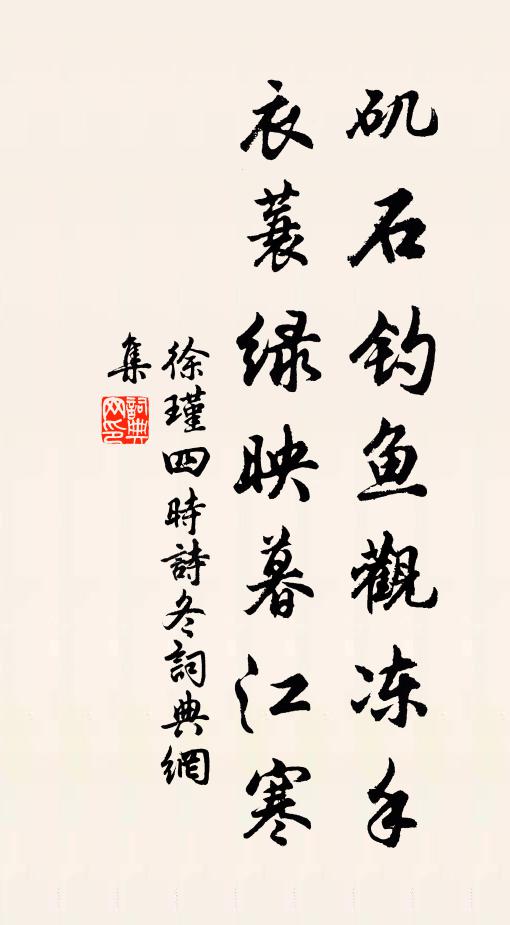 矶石钓鱼觀冻手
衣蓑绿映暮江寒
徐瑾四時詩冬詞典網
集
詞典
网印